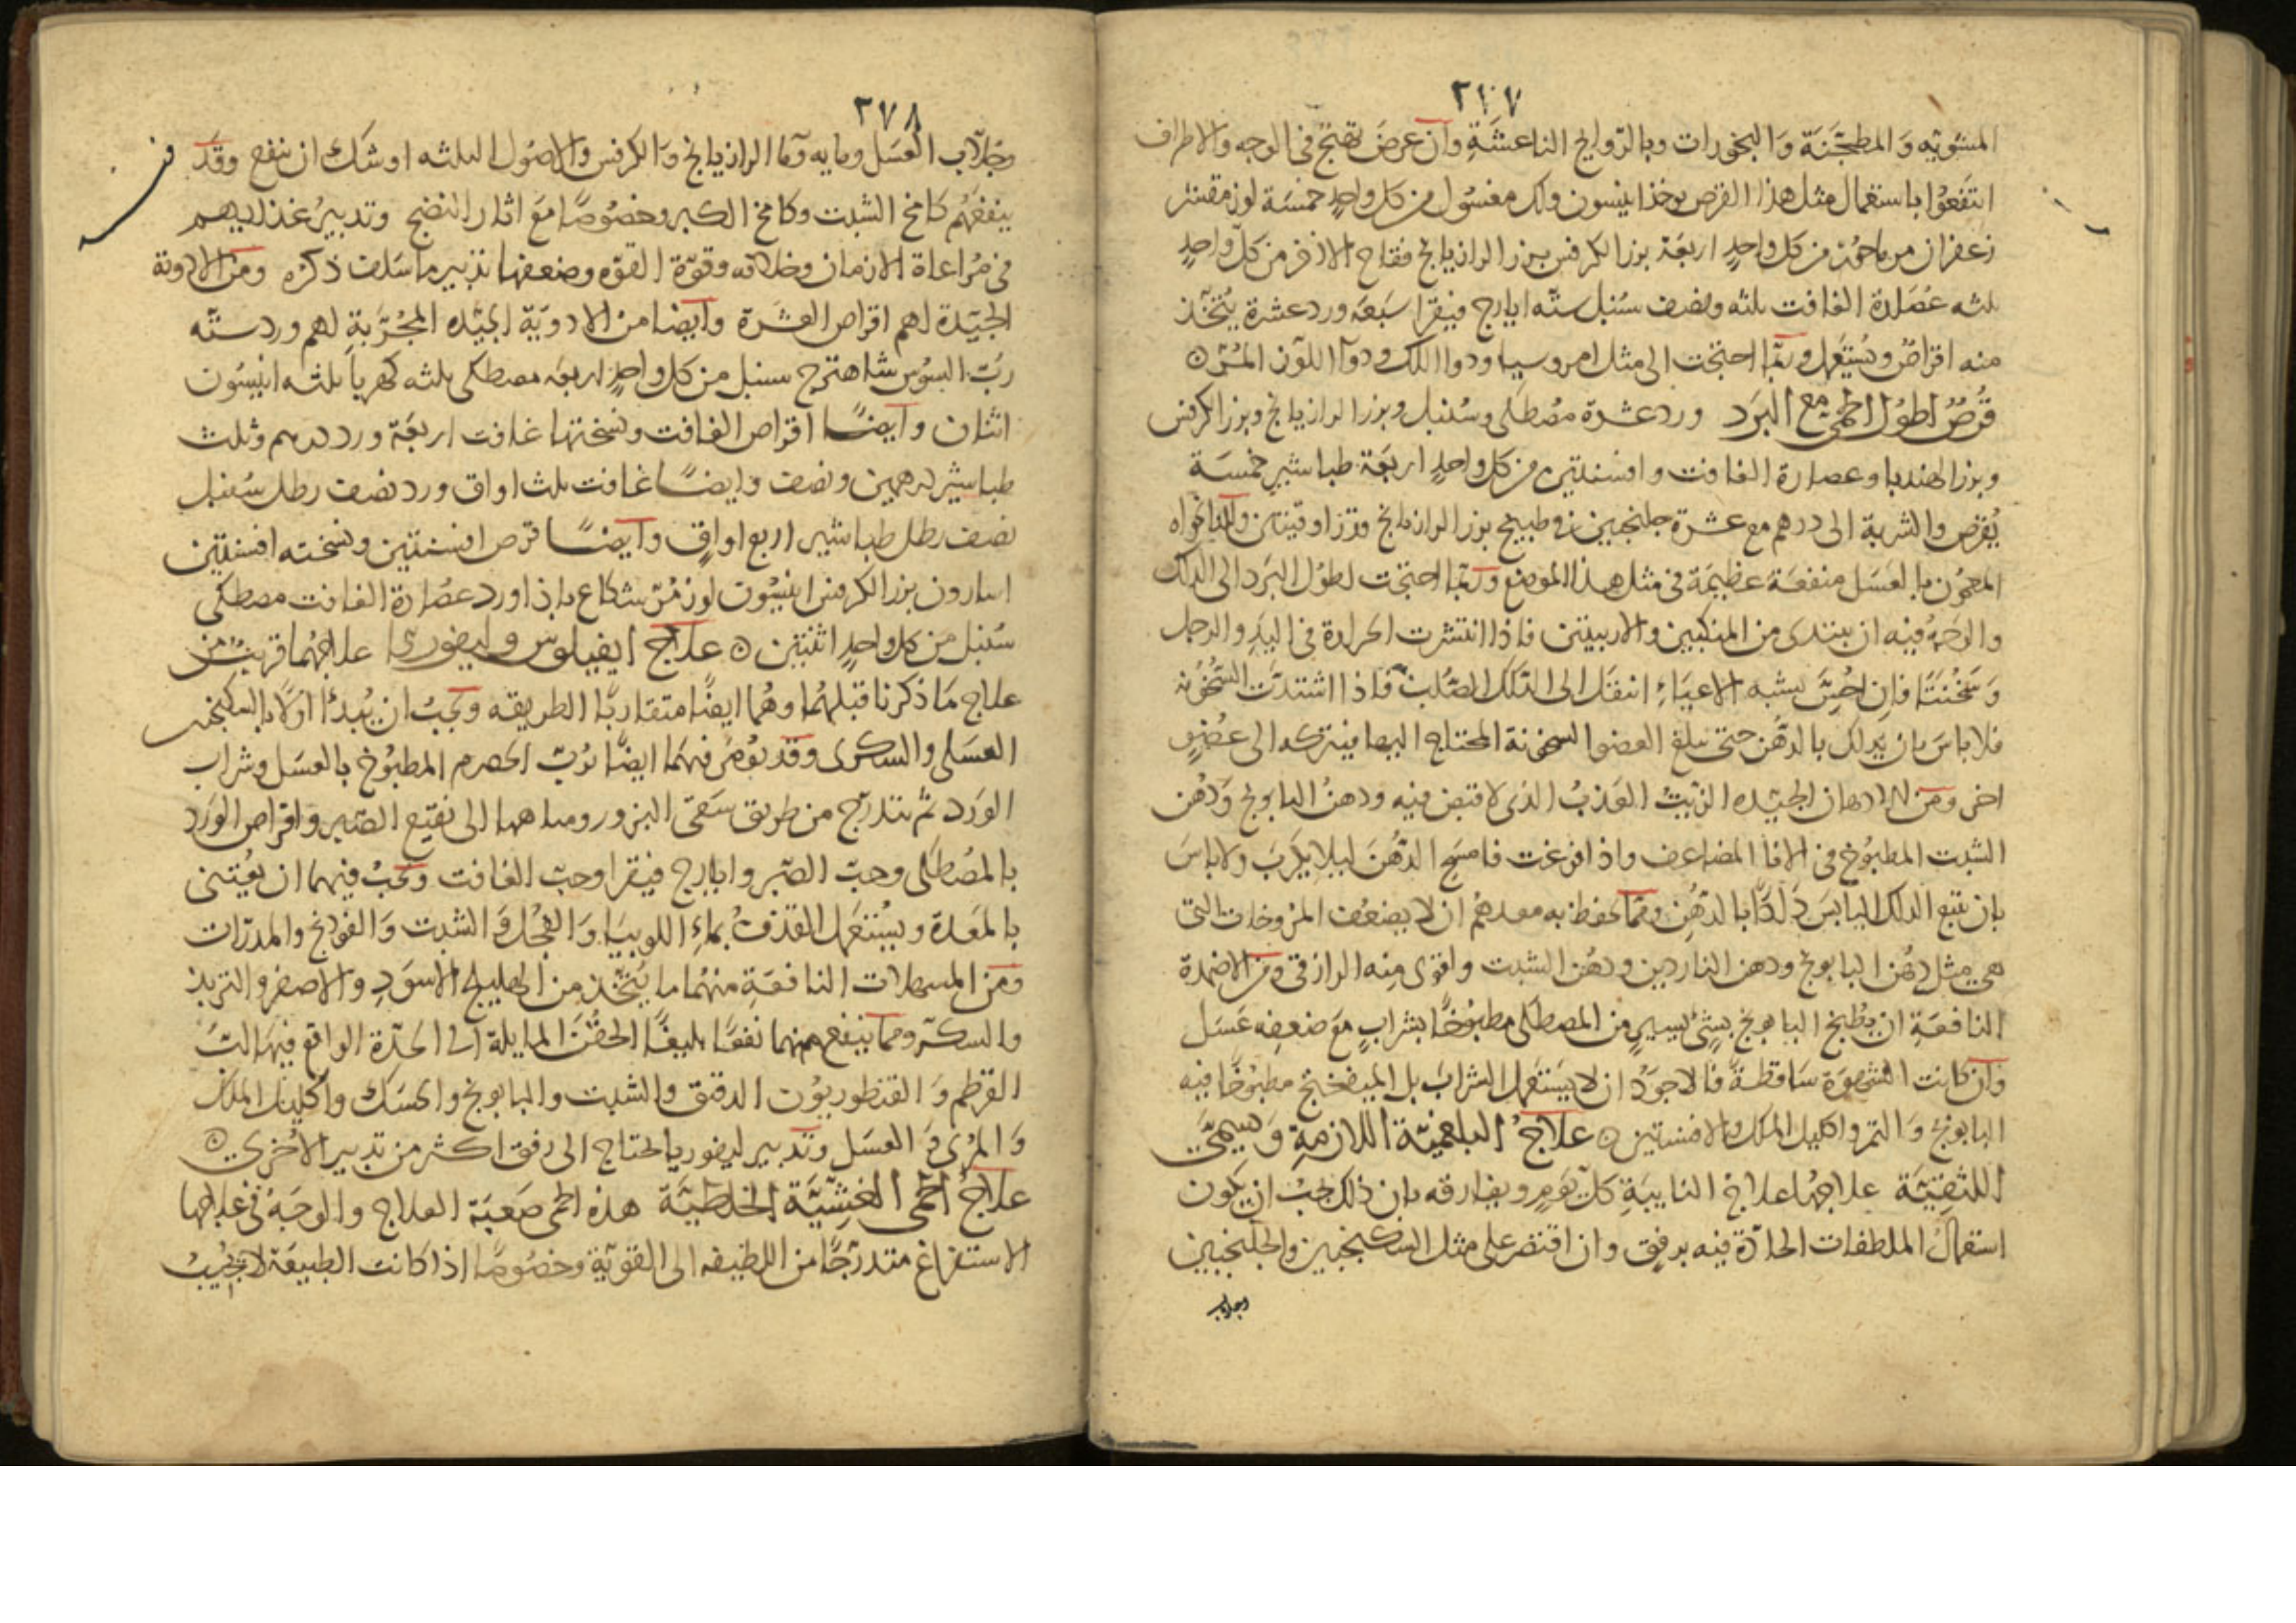 ٣٧٧
المشويّه وَالمطجّنَة وَالبخورات وبالرّوايح الناعشَةِ وان عرضَ تهيّج فى الوجه والاطراف
انتفعوا باستعمال مثل هذا القرص يوخذ انيسون ولك مغسُول من كل واحدٍ خمسَة لوز مقشر
زعفران مر ماحوُز من كل واحدٍ اربعَة بزر الكرفس بزر الرازيانج فقاح الاذخر من كلّ واحدٍ
ثلثه عُصَارة الغافت ثلثه ونصف سُنبل ستّه ايارج فيقرا سَبعَه ورد عشرة يُتخّذ
منه اقراصٌ ويُستَعمل وربّما احتيجت الى مثل امروسيا ودوا اللك ودوآ اللّوز المُرّ ۞
قُرصٌ لطول الحمّى مع البَرد ورد عشرة مصُطكى وسُنبل وبزر الرازيانج وبزر الكرفس
وبزر الهندبا وعصارة الغافت وافسنتين من كل واحدٍ اربعَة طباشير خمسَة
يُقرّص والشربة الى درهم مع عشرة جلنجبين فى طبيخ بزر الرازيانج قدر اوقيتين والنانخواه
المعجُون بالعَسَل منفعَة عظيمَة فى مثل هذا الموضع وربّما احتيجت لطُول البَرد الى الدلك
والوَجهُ فيه ان يبتدى من المنكبين والاربيتين فاذا انتشرت الحرارة فى اليدِ والرجل
وَسَخُنتَا فان اُحِسَّ بشبه الاعيَاءِ انتقل الى الدَّلك الصُّلب فاذا اشتدّت السّخُوُنه
فلا باسَ بان يدلك بالدّهُن حتى يبلغ العضو السخونة المحتاج اليها فيتركه الى عُضوٍ
اخر ومن الادهان الجيّده الزيَتُ العَذبُ الذى لا قبض فيه ودهنُ البابونج وَدُهن
الشبت المطبُوُخ فى الانا المضاعف واذا فرغت فامسَح الدّهُنَ ليلا يكربَ ولا باسَ
بان يتبع الدلك اليابسَ دَلكًا بالدّهُنِ وممّا يحفظ به معدهُم ان لا يضعُف المرُوخات التى
هى مثل دهُن البابونج ودهن الناردين ودهُن الشبت واقوى مِنه الرازقى ومن الاضمدة
النافعَةِ ان يطُبخ البابونج بِشىٍ يسيرٍ من المصطكى مطبوُخًا بشرابٍ مَعَ ضعفِه عَسَل
وَان كانت الشهوَة سَاقطةً فالاجودُ ان لا يَستَعمل الشرابَ بل الميبُختج مطبوُخًا فيه
البابونج وَالتمر واكليل الملك والافسنتين ۞ علاجُ البلغميّة اللازمةِ وَيسمَّى
اللثقيّة علاجهُا علاج النايبةِ كل يَومٍ ويفارقه بان ذلك يجبُ ان يكون
استعمالُ الملطفات الحادّة فيه برفقٍ وان اقتصر على مثل السكنجبين والجلنجبين
وجلاب
٣٧٨
وجُلاّب العسَل ومايه وَما الرازيانج وَالكرفس والاصُول الثلثه اوشَك ان ينفع وقد
ينفعَهُم كامخ الشبت وكامخ الكبر وخصُوصًا معَ اثار النضج وتدبيرُ غذايهم
فى مُراعاة الازمان وخلافه وقوّة القوّه وضعفها تدبير ما سَلف ذكره ومن الادوية
الجيّدة لهم اقراص العشَرة وايضا من الادويَة الجيّده المجُرَّبةِ لهم ورد ستّه
ربّ السُوس شاهترج سنبل من كل واحدٍ اربعَه مصطكى ثلثه كهربا ثلثه انيسُون
اثنان وايضًا اقراص الغافت ونسُختها غافت اربعَة ورد درهم وثلث
طباشير درهمين ونصف وايضًا غافت ثلث اواق ورد نصف رطل سُنبل
نصف رطل طباشير اربع اواقٍ وايضًا قرص افسنتين ونسخته افسنتين
اسارون بزر الكرفس انيسُون لوز مُرّ شكاع باذاورد عصُارة الغافت مصطكى
سُنبل من كل واحدٍ اثنين ۞ علاج ايفيلوس وليفوريا علاجهُما قريبٌ من
علاج مَا ذكرنا قبلهُما وهُما ايضًا متقاربًا الطريقه ويجبُ ان يُبدَأ اوّلًا بالسكنجبين
العسَلى والسكرى وقد يوُمرَ فيهمَا ايضًا برُبّ الحصرم المطبُوُخ بالعسَل وشراب
الورد ثم يتدرّج من طريق سَقى البزور ومياهها الى نقيع الصّبر واقراص الورد
بالمصُطكى وحبّ الصّبر وايارج فيقرا وحبّ الغافت ويجبُ فيهما ان يُعتنى
بالمعَدة ويسُتعَمل القذفُ بماءِ اللوبيَا وَالفجُل وَالشبت وَالفودنج والمدرّات
ومن المسهلات النافعَةِ منهُما ما يُتخّذ من الهليلج الاسوَدِ والاصفر والتربذ
والسكّر ومما ينفع منهما نفعًا بليغًا الحقُنَ المايلة الى الحدّة الواقع فيهَا لبُّ
القرطم وَالقنطوريوُن الدقيق والشبت والبابونج والحسَك واكليل الملك
وَالمرُى وَالعسَل وتدبير ليفوريا يحتاج الى رفق اكثر من تدبير الاُخرى ۞
علاجُ الحمّى الغشيَّة الخلطيّة هذه الحمى صَعبَة العلاج والوجَهُ فى علاجها
الاستفراغ متدرّجًا من اللطيفه الى القويّة وخصُوصًا اذا كانت الطبيعَة لا تجُيبُ